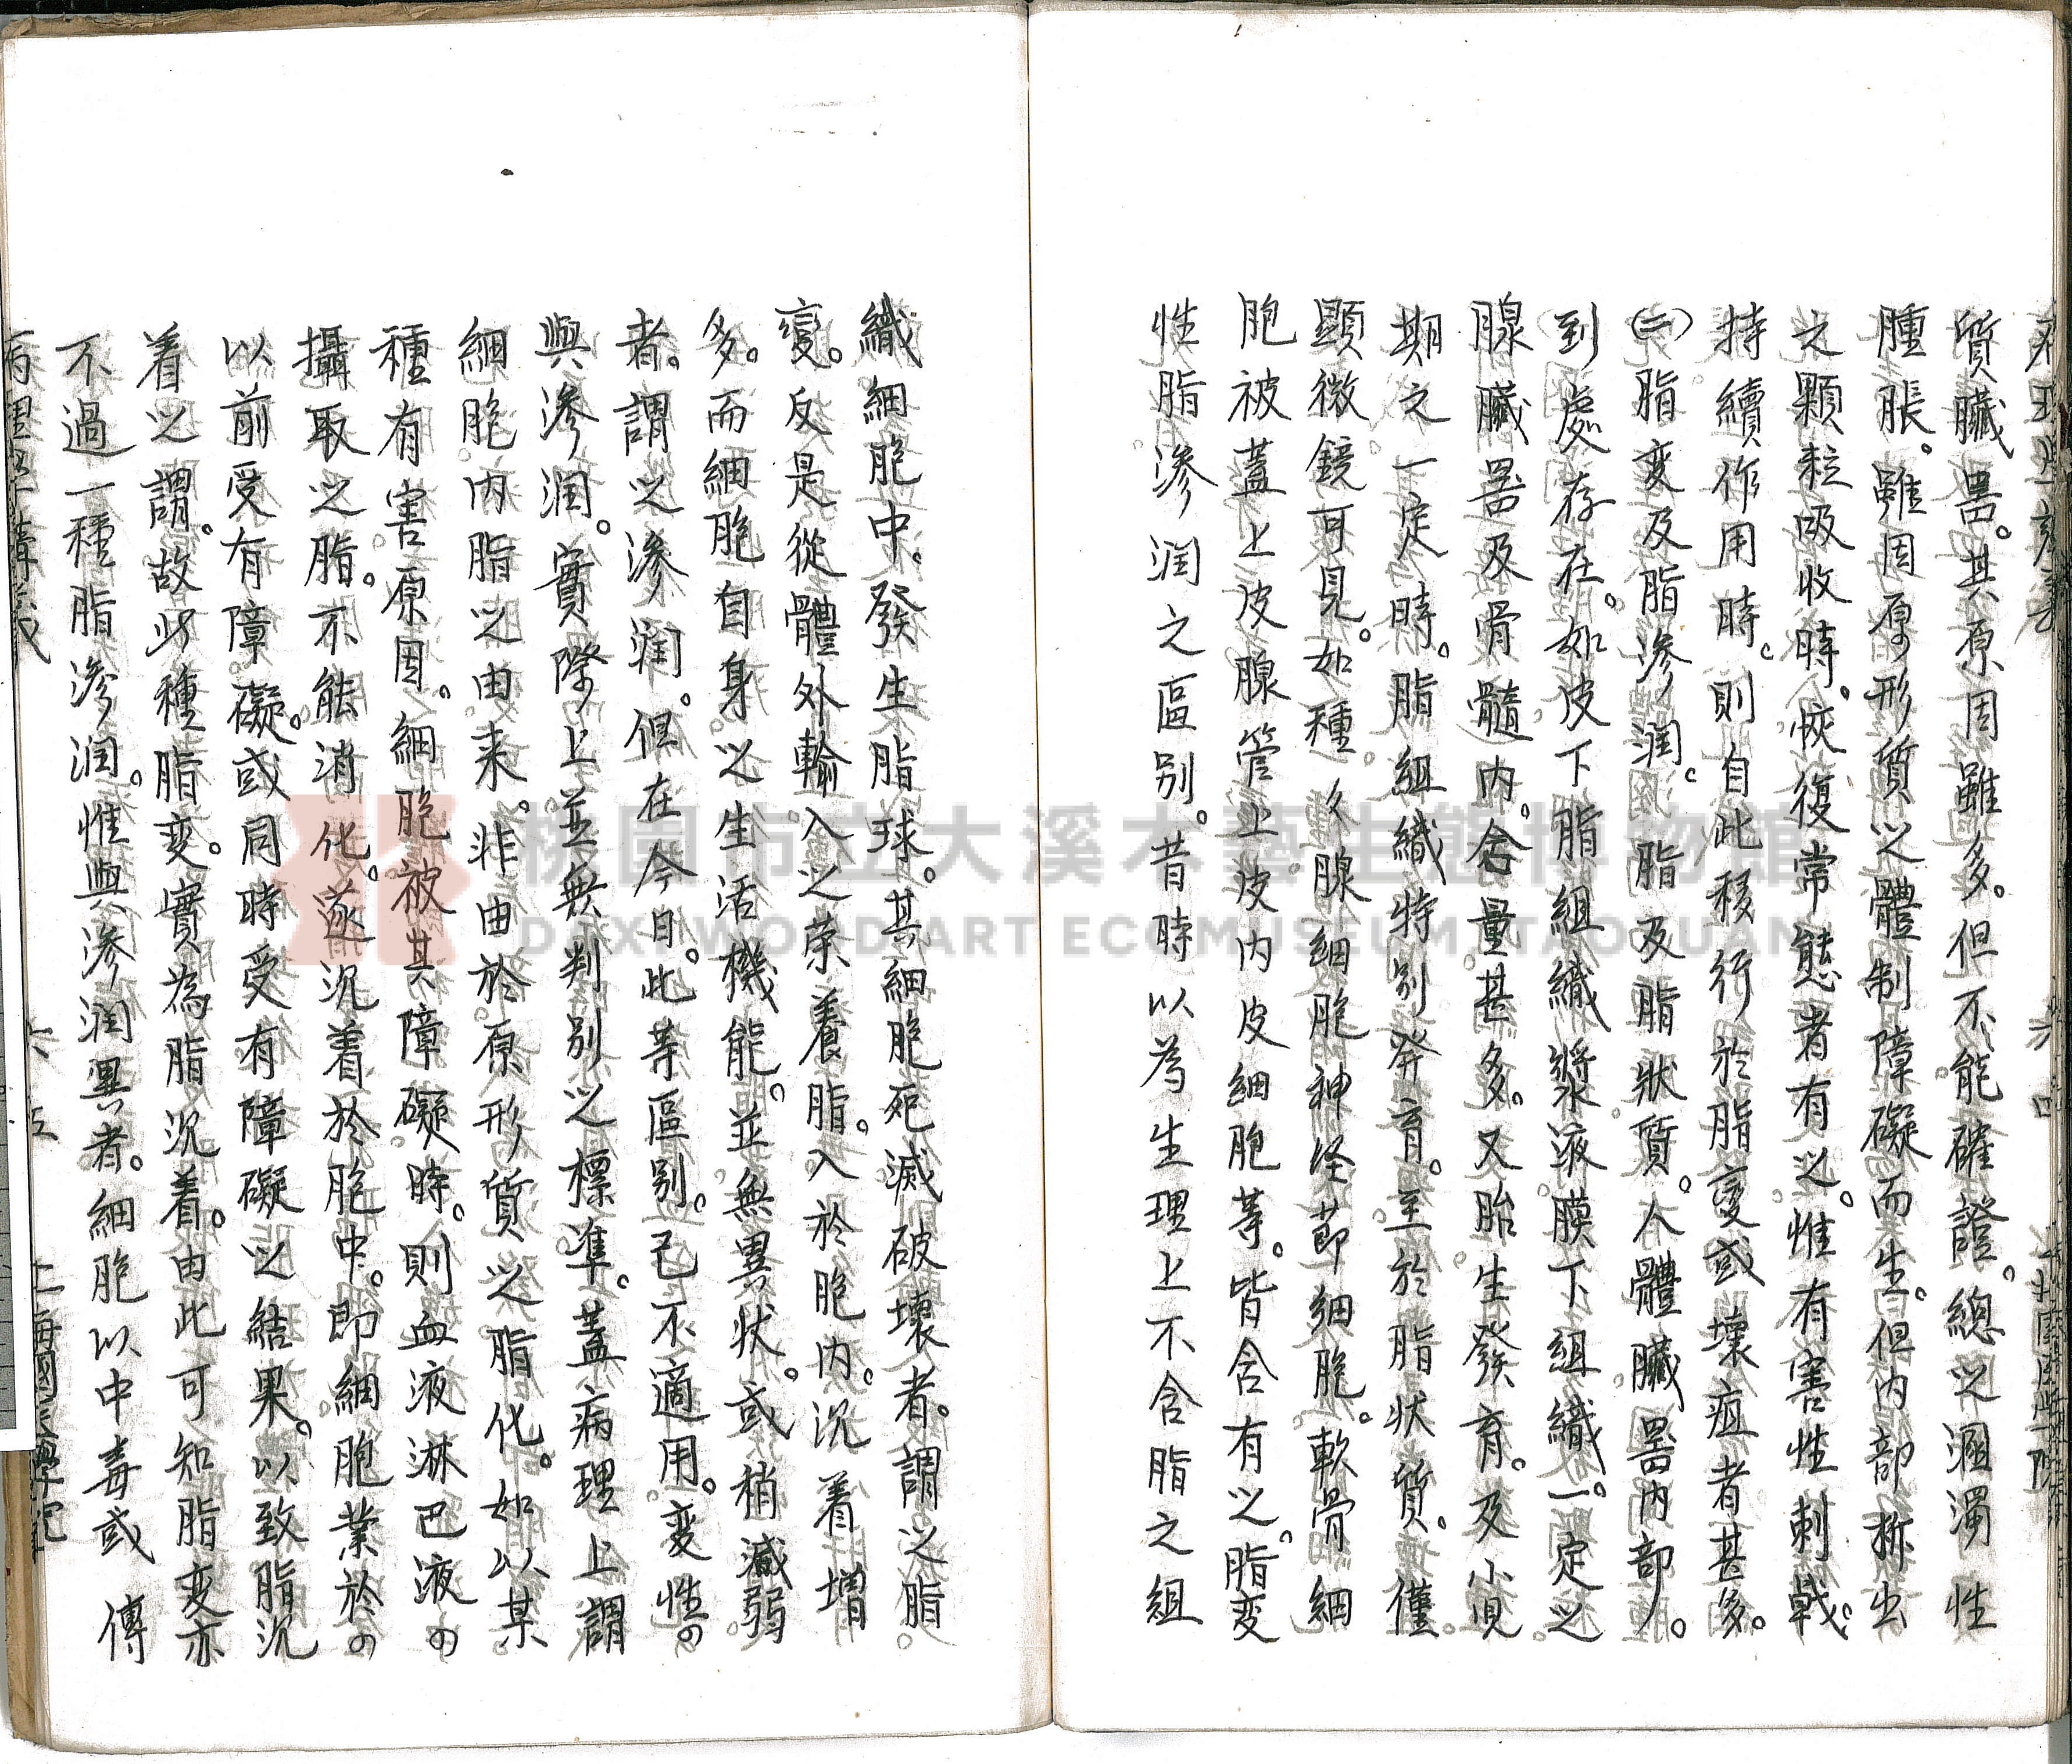 質臟器。其原因雖多。但不能確證。總之溷濁性
腫脹。雖因原形質之體制障礙而生。但内部拆出
之顆粒吸收時。恢復常態者有之。惟有害性刺戟。
持續作用時。則自此移行於脂變或壞疽者甚多。
(二)脂変及脂滲润。脂及脂狀質。人體臟器内部。
到處存在。如皮下脂組織漿液膜下組織。一定之
腺臟器及骨髓内。含量甚多。又胎生發育。及小児
期之一定時。脂組織特别発育。至於脂状質。僅
顯微鏡可見。如種々腺細胞神经節細胞。軟骨細
胞被蓋上皮腺管上皮内皮細胞等。皆含有之。脂変
性脂滲润之區别。昔時以為生理上不含脂之組
織細胞中。發生脂球。其細胞死滅破壞者。謂之脂
變。反是從體外輸入之荣養脂。入於胞内。沉着增
多。而細胞自身之生活機能。並無異状。或稍減弱
者。謂之滲润。但在今日。此等區别。已不適用。変性の
與滲润。實際上並無判别之標準。蓋病理上謂
細胞内脂之由来。非由於原形質之脂化。如以某
種有害原因。細胞被其障礙時。則血液淋巴液の
攝取之脂。不能消化。遂沉着於胞中。即細胞業於の
以前受有障礙。或同時受有障礙之結果。以致脂沉
着之謂。故此種脂变。實為脂沉着。由此可知脂变亦
不過一種脂滲润。惟與滲润異者。細胞以中毒或傳
病理學講義 六五 上海國医學院
桃園市立大溪木藝生態博物館
DAXI WOOD ART ECOMUSEUM, TAOYUAN